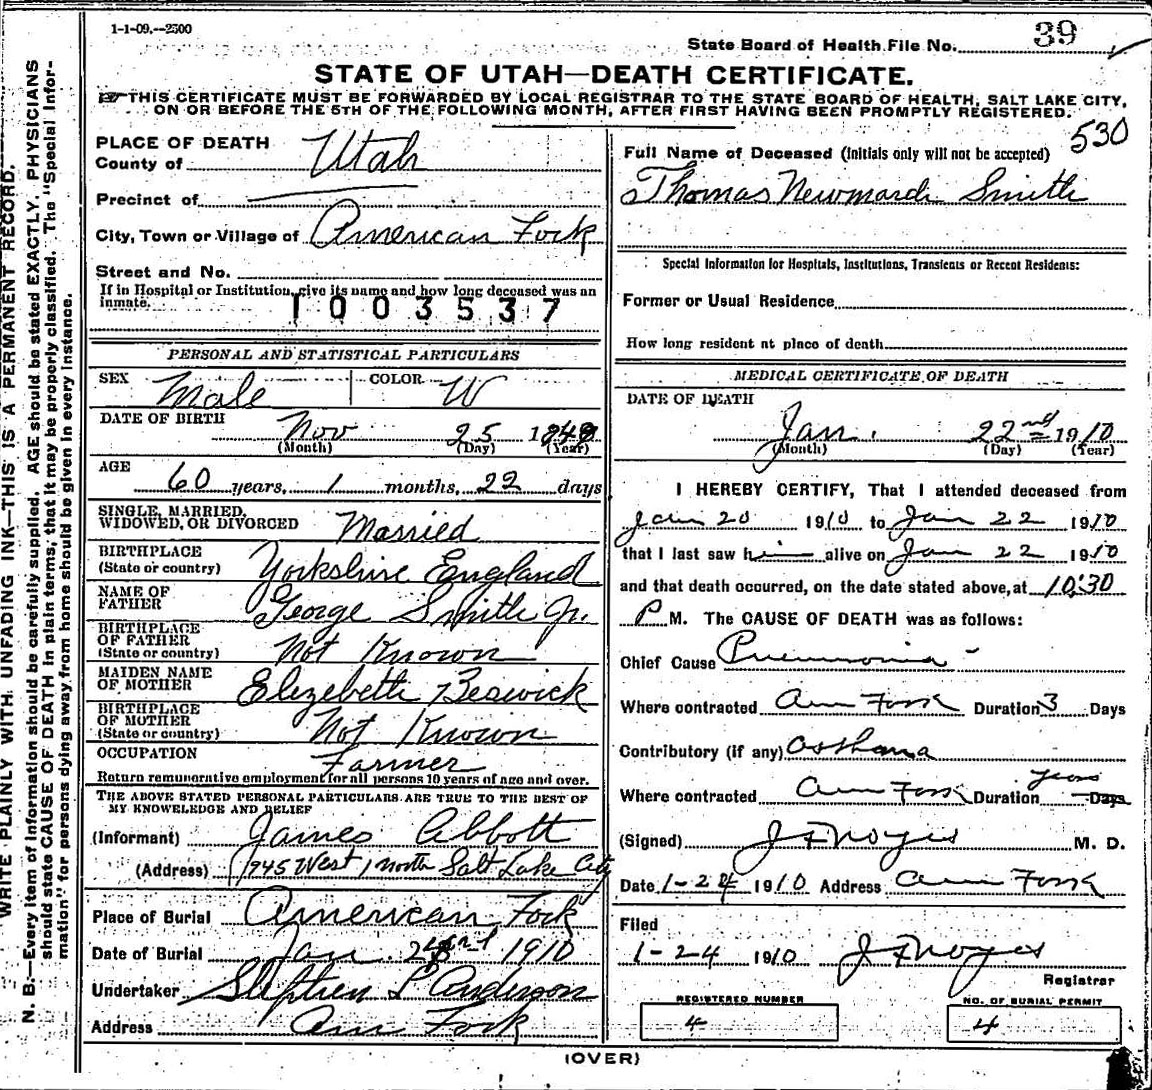 1-1-09.--2500
State Board of Health File No. 39
STATE OF UTAH—DEATH CERTIFICATE.
THIS CERTIFICATE MUST BE FORWARDED BY LOCAL REGISTRAR TO THE STATE BOARD OF HEALTH, SALT LAKE CITY,
ON OR BEFORE THE 5TH OF THE FOLLOWING MONTH, AFTER FIRST HAVING BEEN PROMPTLY REGISTERED.
530
PLACE OF DEATH
County of Utah
Precinct of
City, Town or Village of American Fork
Street and No.
If in Hospital or Institution, give its name and how long deceased was an
inmate.
1003537
PERSONAL AND STATISTICAL PARTICULARS
SEX Male COLOR W
DATE OF BIRTH
Nov 25 184
(Month) (Day) (Year)
AGE
60 years, 1 months, 22 days
SINGLE, MARRIED,
WIDOWED, OR DIVORCED Married
BIRTHPLACE
(State or country) Yorkshire England
NAME OF
FATHER George Smith Jr.
BIRTHPLACE
OF FATHER
(State or country) Not Known
MAIDEN NAME
OF MOTHER Elizebeth Beswick
BIRTHPLACE
OF MOTHER
(State or country) Not Known
OCCUPATION Farmer
Return remunerative employment for all persons 10 years of age and over.
THE ABOVE STATED PERSONAL PARTICULARS ARE TRUE TO THE BEST OF
MY KNOWLEDGE AND BELIEF
(Informant) James Abbott
(Address) 945 West 1 North Salt Lake City
Place of Burial American Fork
Date of Burial Jan. 1910
Undertaker Stephen L Anderson
Address Am Fork
Full Name of Deceased (Initials only will not be accepted)
Thomas Newmarch Smith
Special Information for Hospitals, Institutions, Transients or Recent Residents:
Former or Usual Residence
How long resident at place of death
MEDICAL CERTIFICATE OF DEATH
DATE OF DEATH
Jan. 22nd 1910
(Month) (Day) (Year)
I HEREBY CERTIFY, That I attended deceased from
Jan 20 1910 to Jan 22 1910
that I last saw him alive on Jan 22 1910
and that death occurred, on the date stated above, at 10:30
P M. The CAUSE OF DEATH was as follows:
Chief Cause Pneumonia
Where contracted Am Fork Duration 3 Days
Contributory (if any) Asthma
years
Where contracted Am Fork Duration Days
(Signed) J F Noyes M. D.
Date 1-24 1910 Address Am Fork
Filed
1-24 1910 J F Noyes
Registrar
REGISTERED NUMBER
4
NO. OF BURIAL PERMIT
4
(OVER)
WRITE PLAINLY WITH UNFADING INK—THIS IS A PERMANENT RECORD.
N. B.—Every item of information should be carefully supplied. AGE should be stated EXACTLY. PHYSICIANS
should state CAUSE OF DEATH in plain terms, that it may be properly classified. The "Special Infor-
mation" for persons dying away from home should be given in every instance.